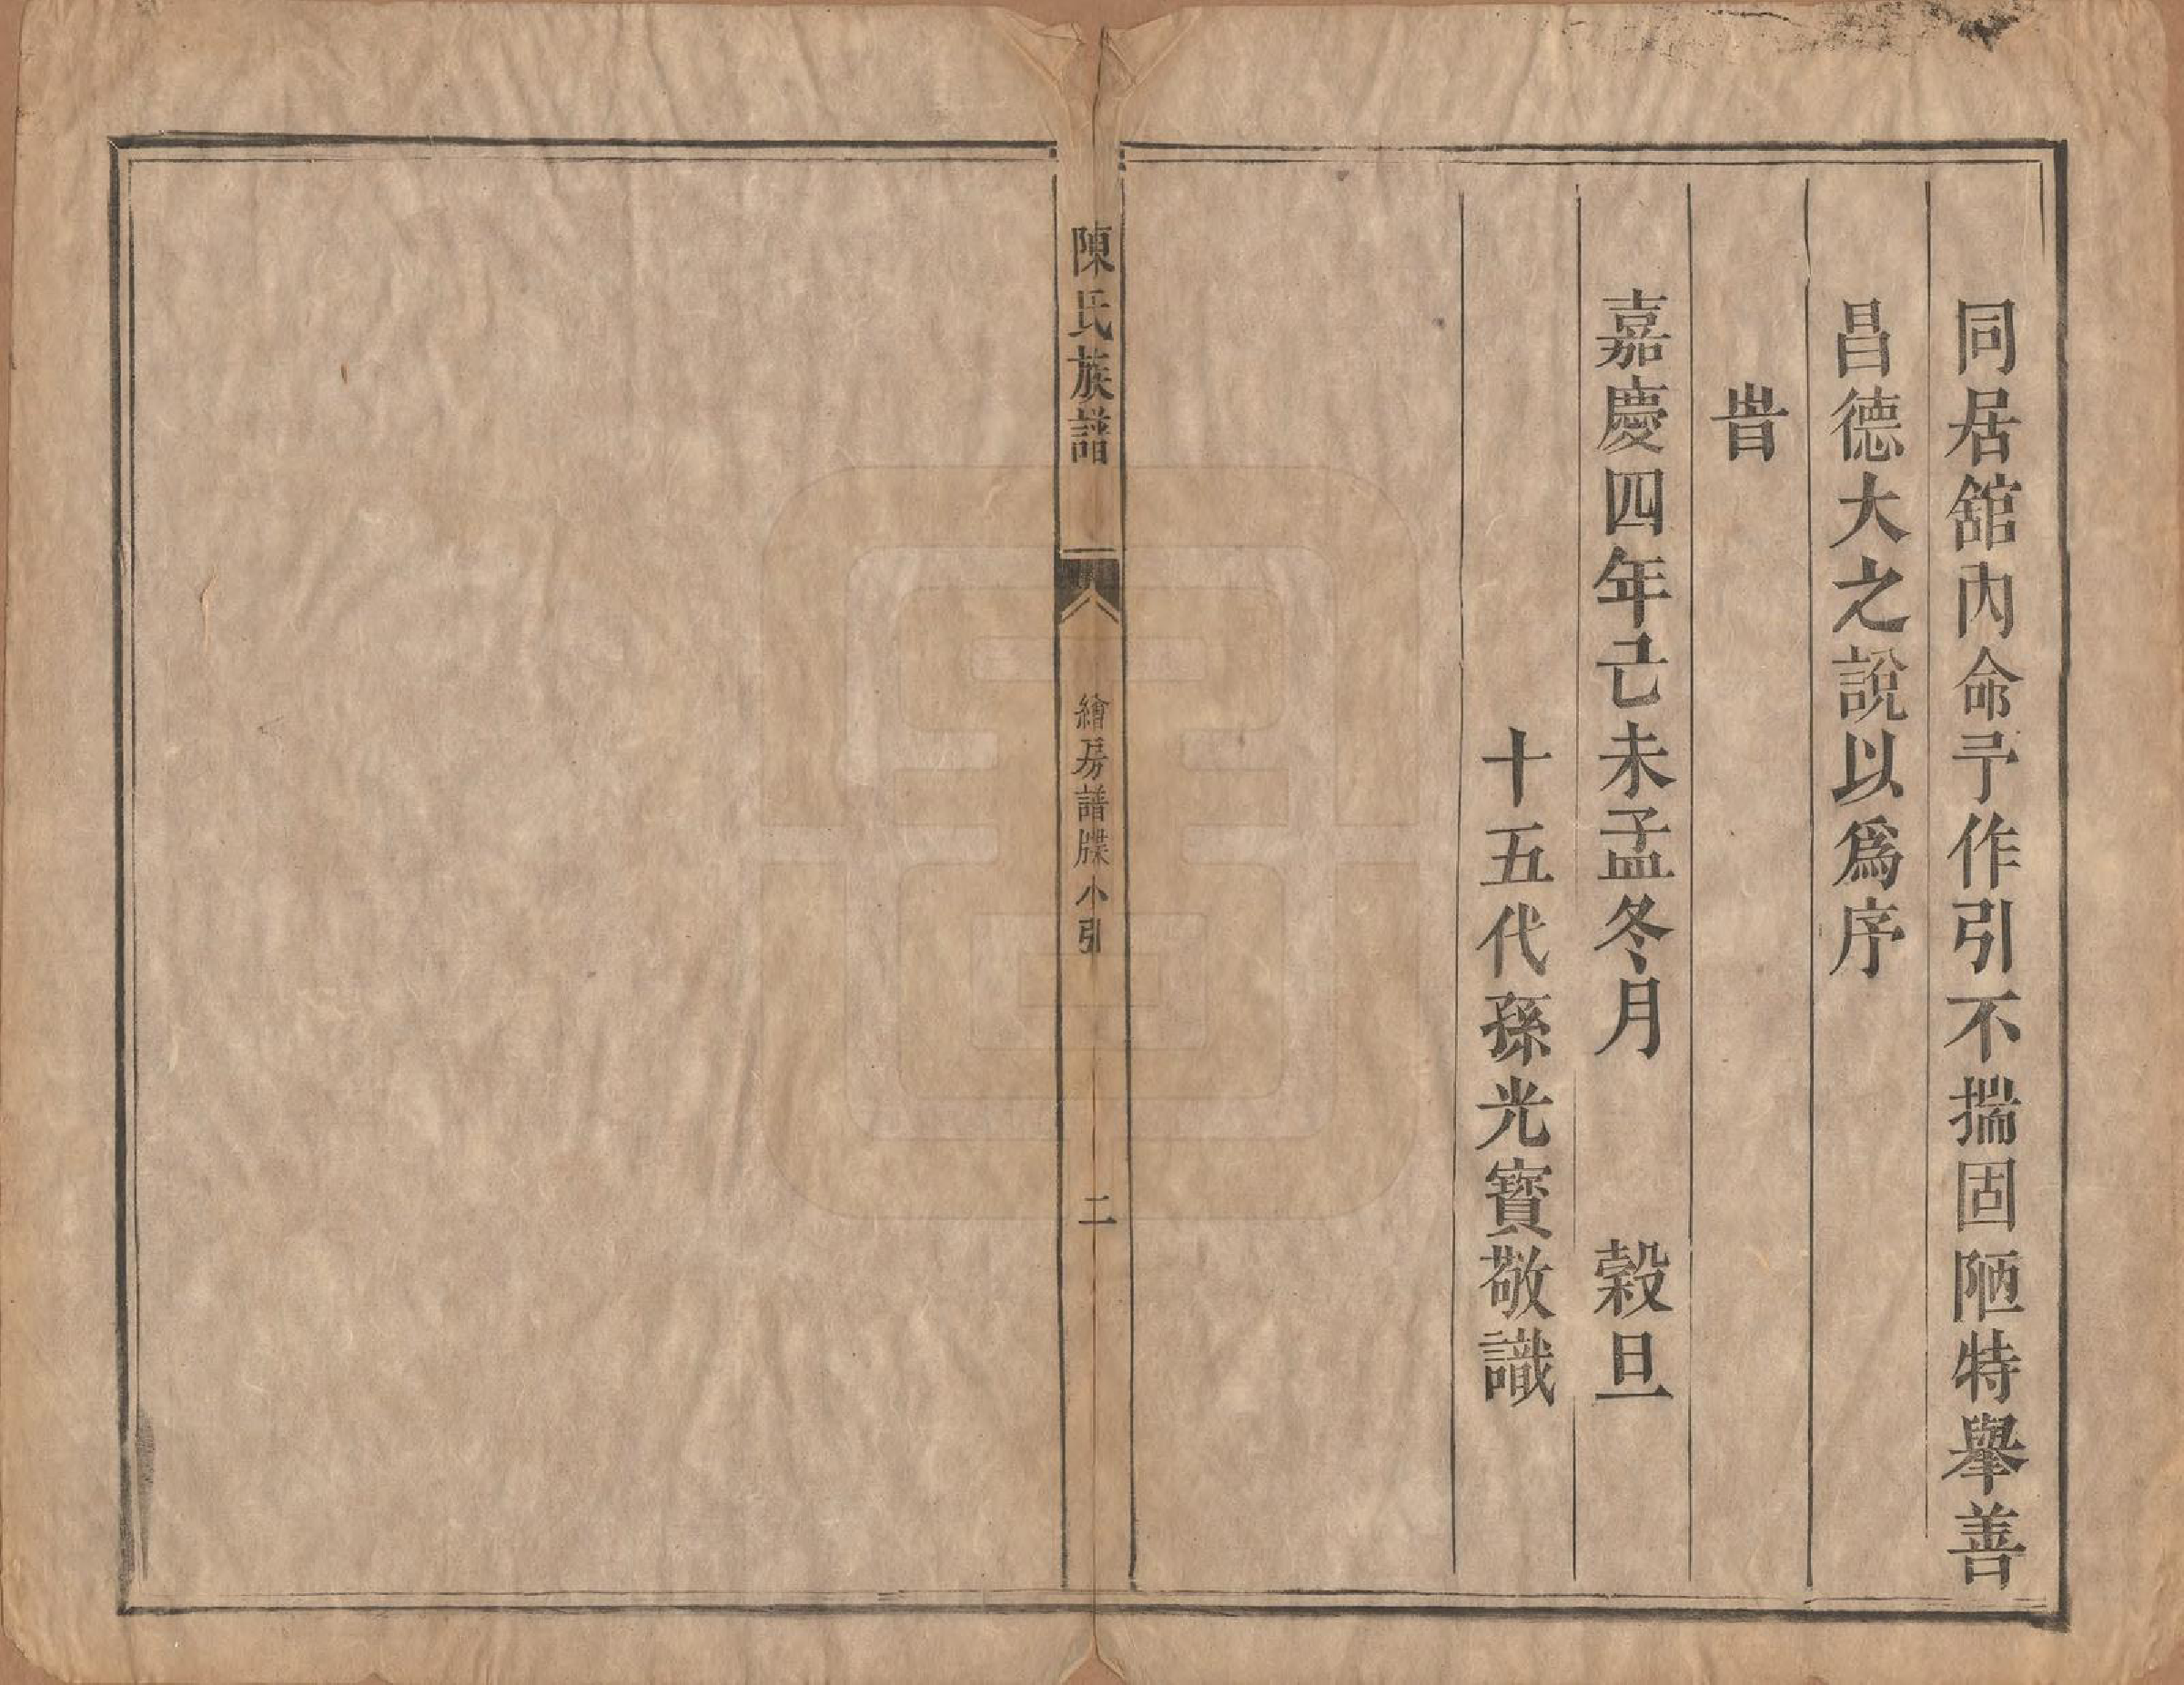 同居舘內命予作引不揣固陋特舉善
昌德大之說以為序
旹
嘉慶四年己未孟冬月　穀旦
十五代孫光寳敬識
陳氏族譜
繪房譜牒小引
二